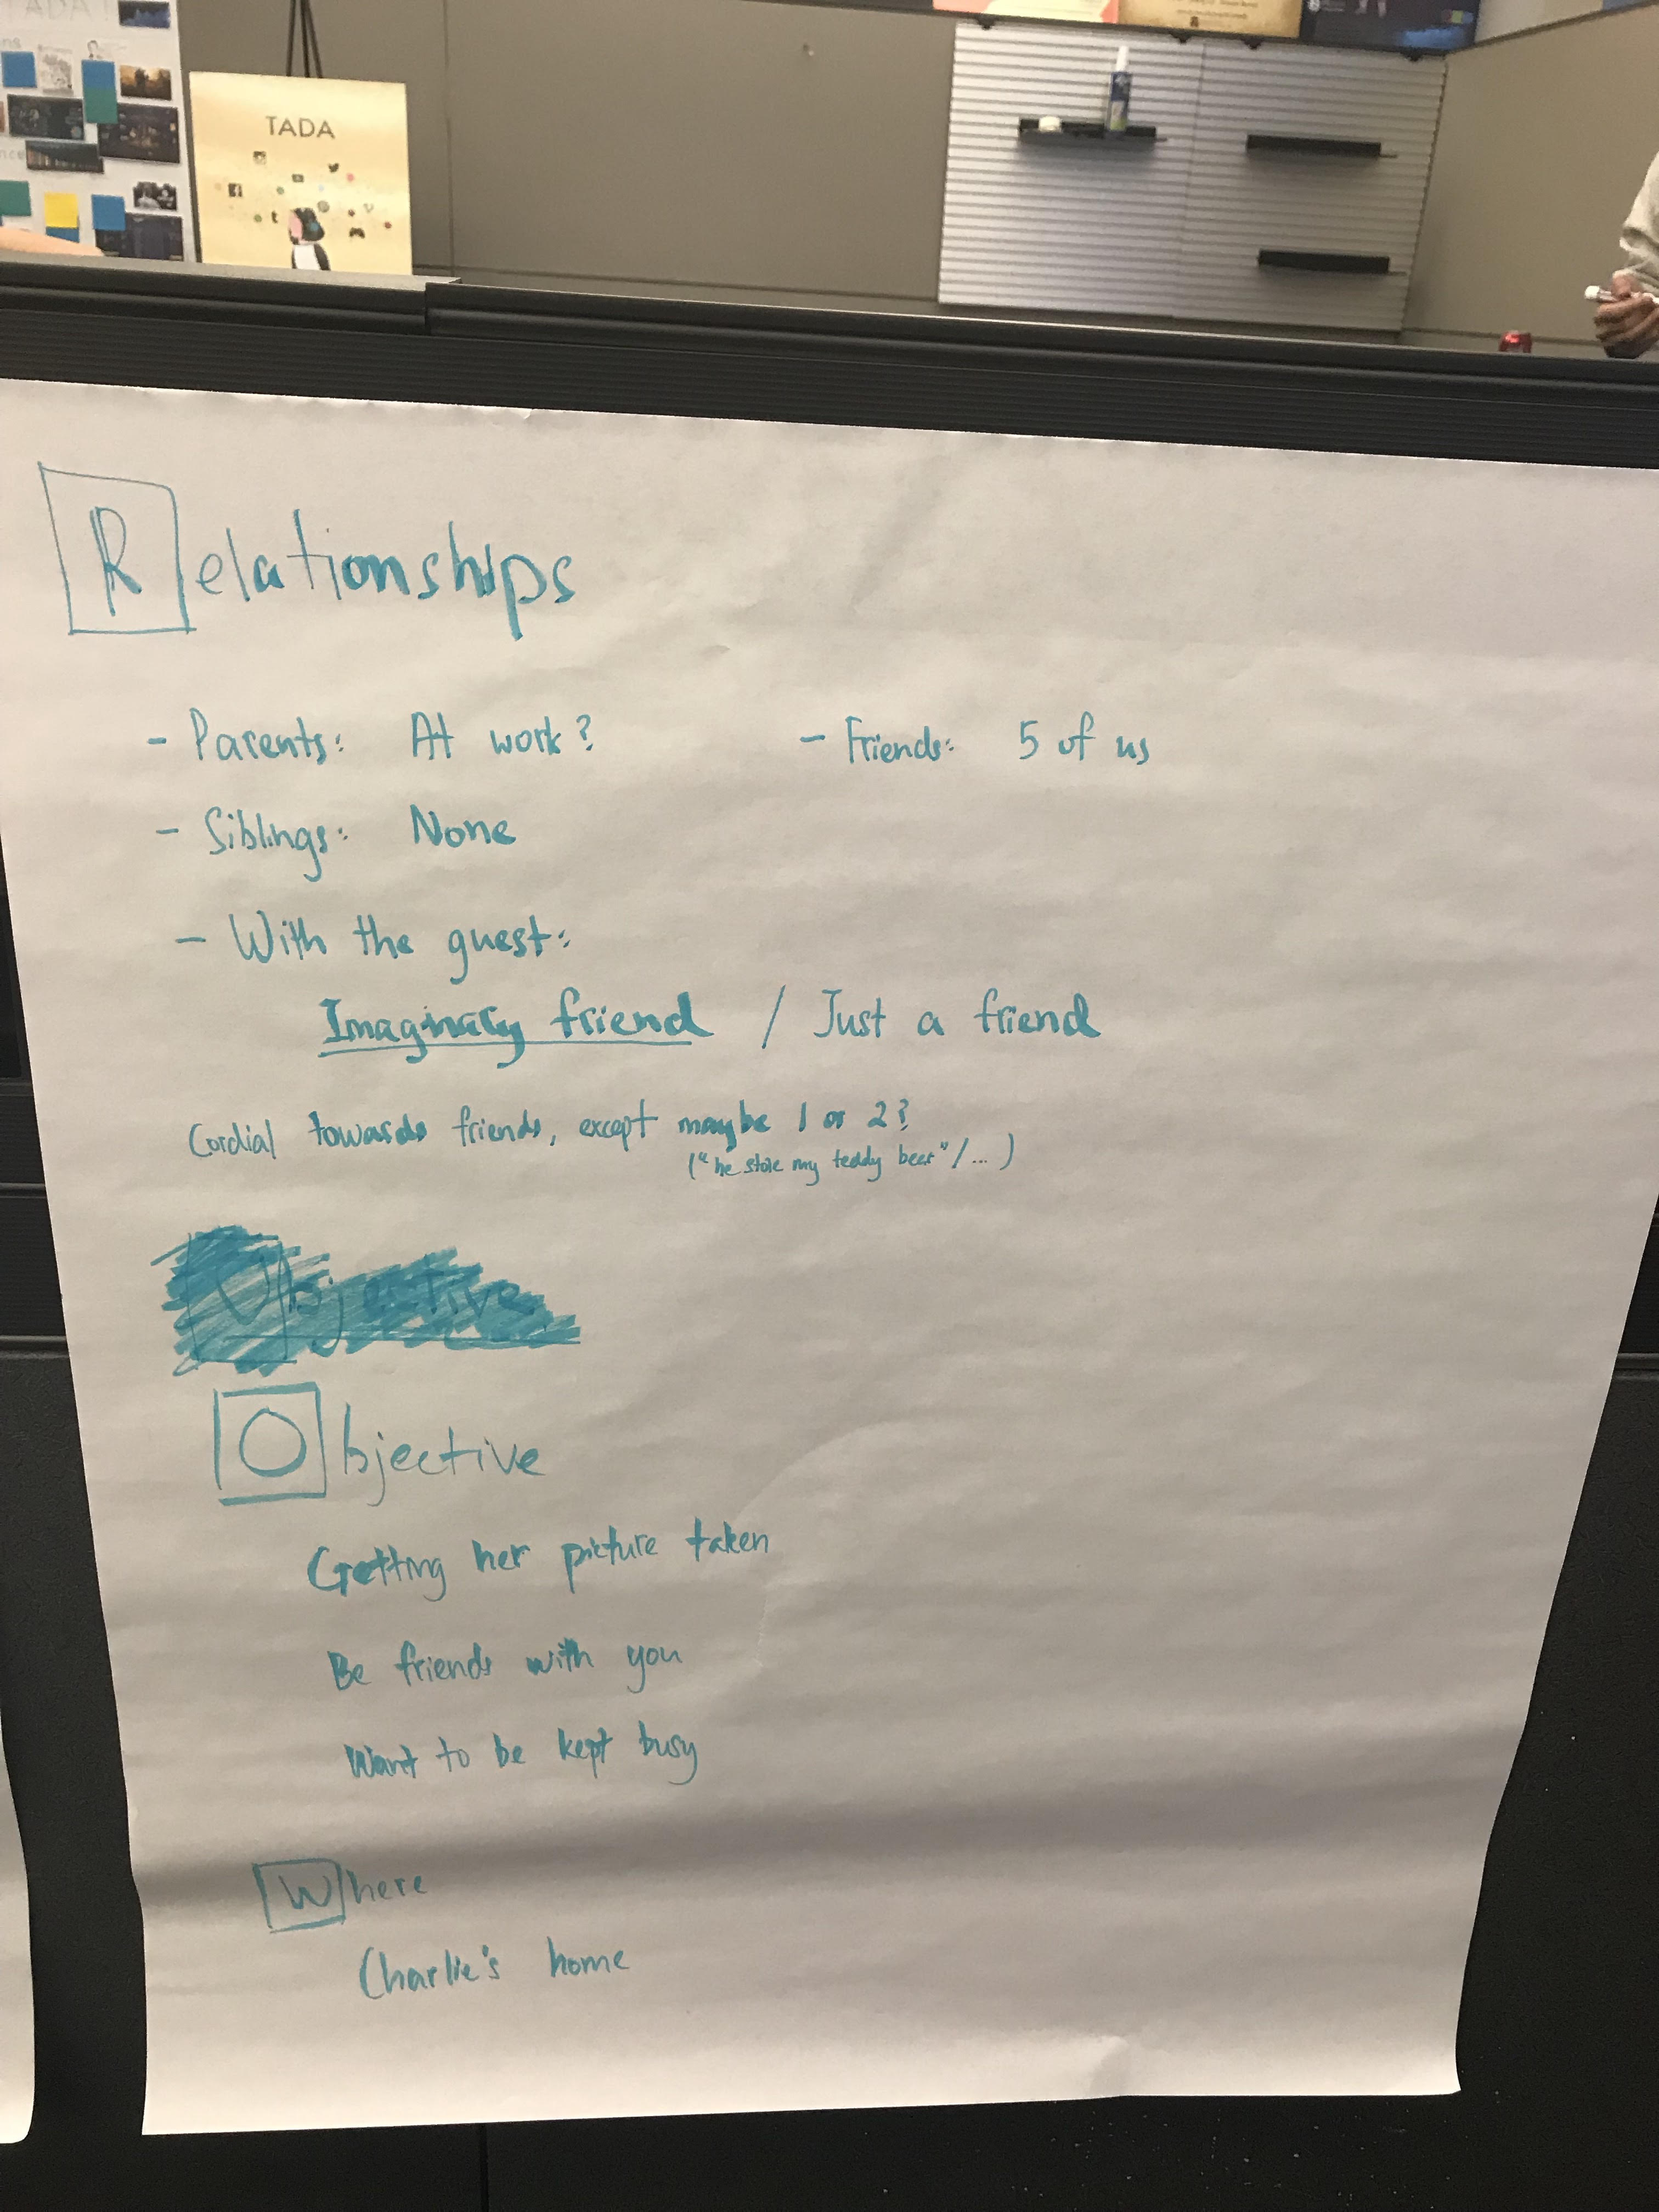 TADA
Relationships
- Parents: At work?
- Friends: 5 of us
- Siblings: None
- With the guest:
Imaginary friend / Just a friend
Cordial towards friends, except maybe 1 or 2?
("he stole my teddy beer"/...)
Objective
Objective
Getting her picture taken
Be friends with you
Want to be kept busy
Where
Charlie's home